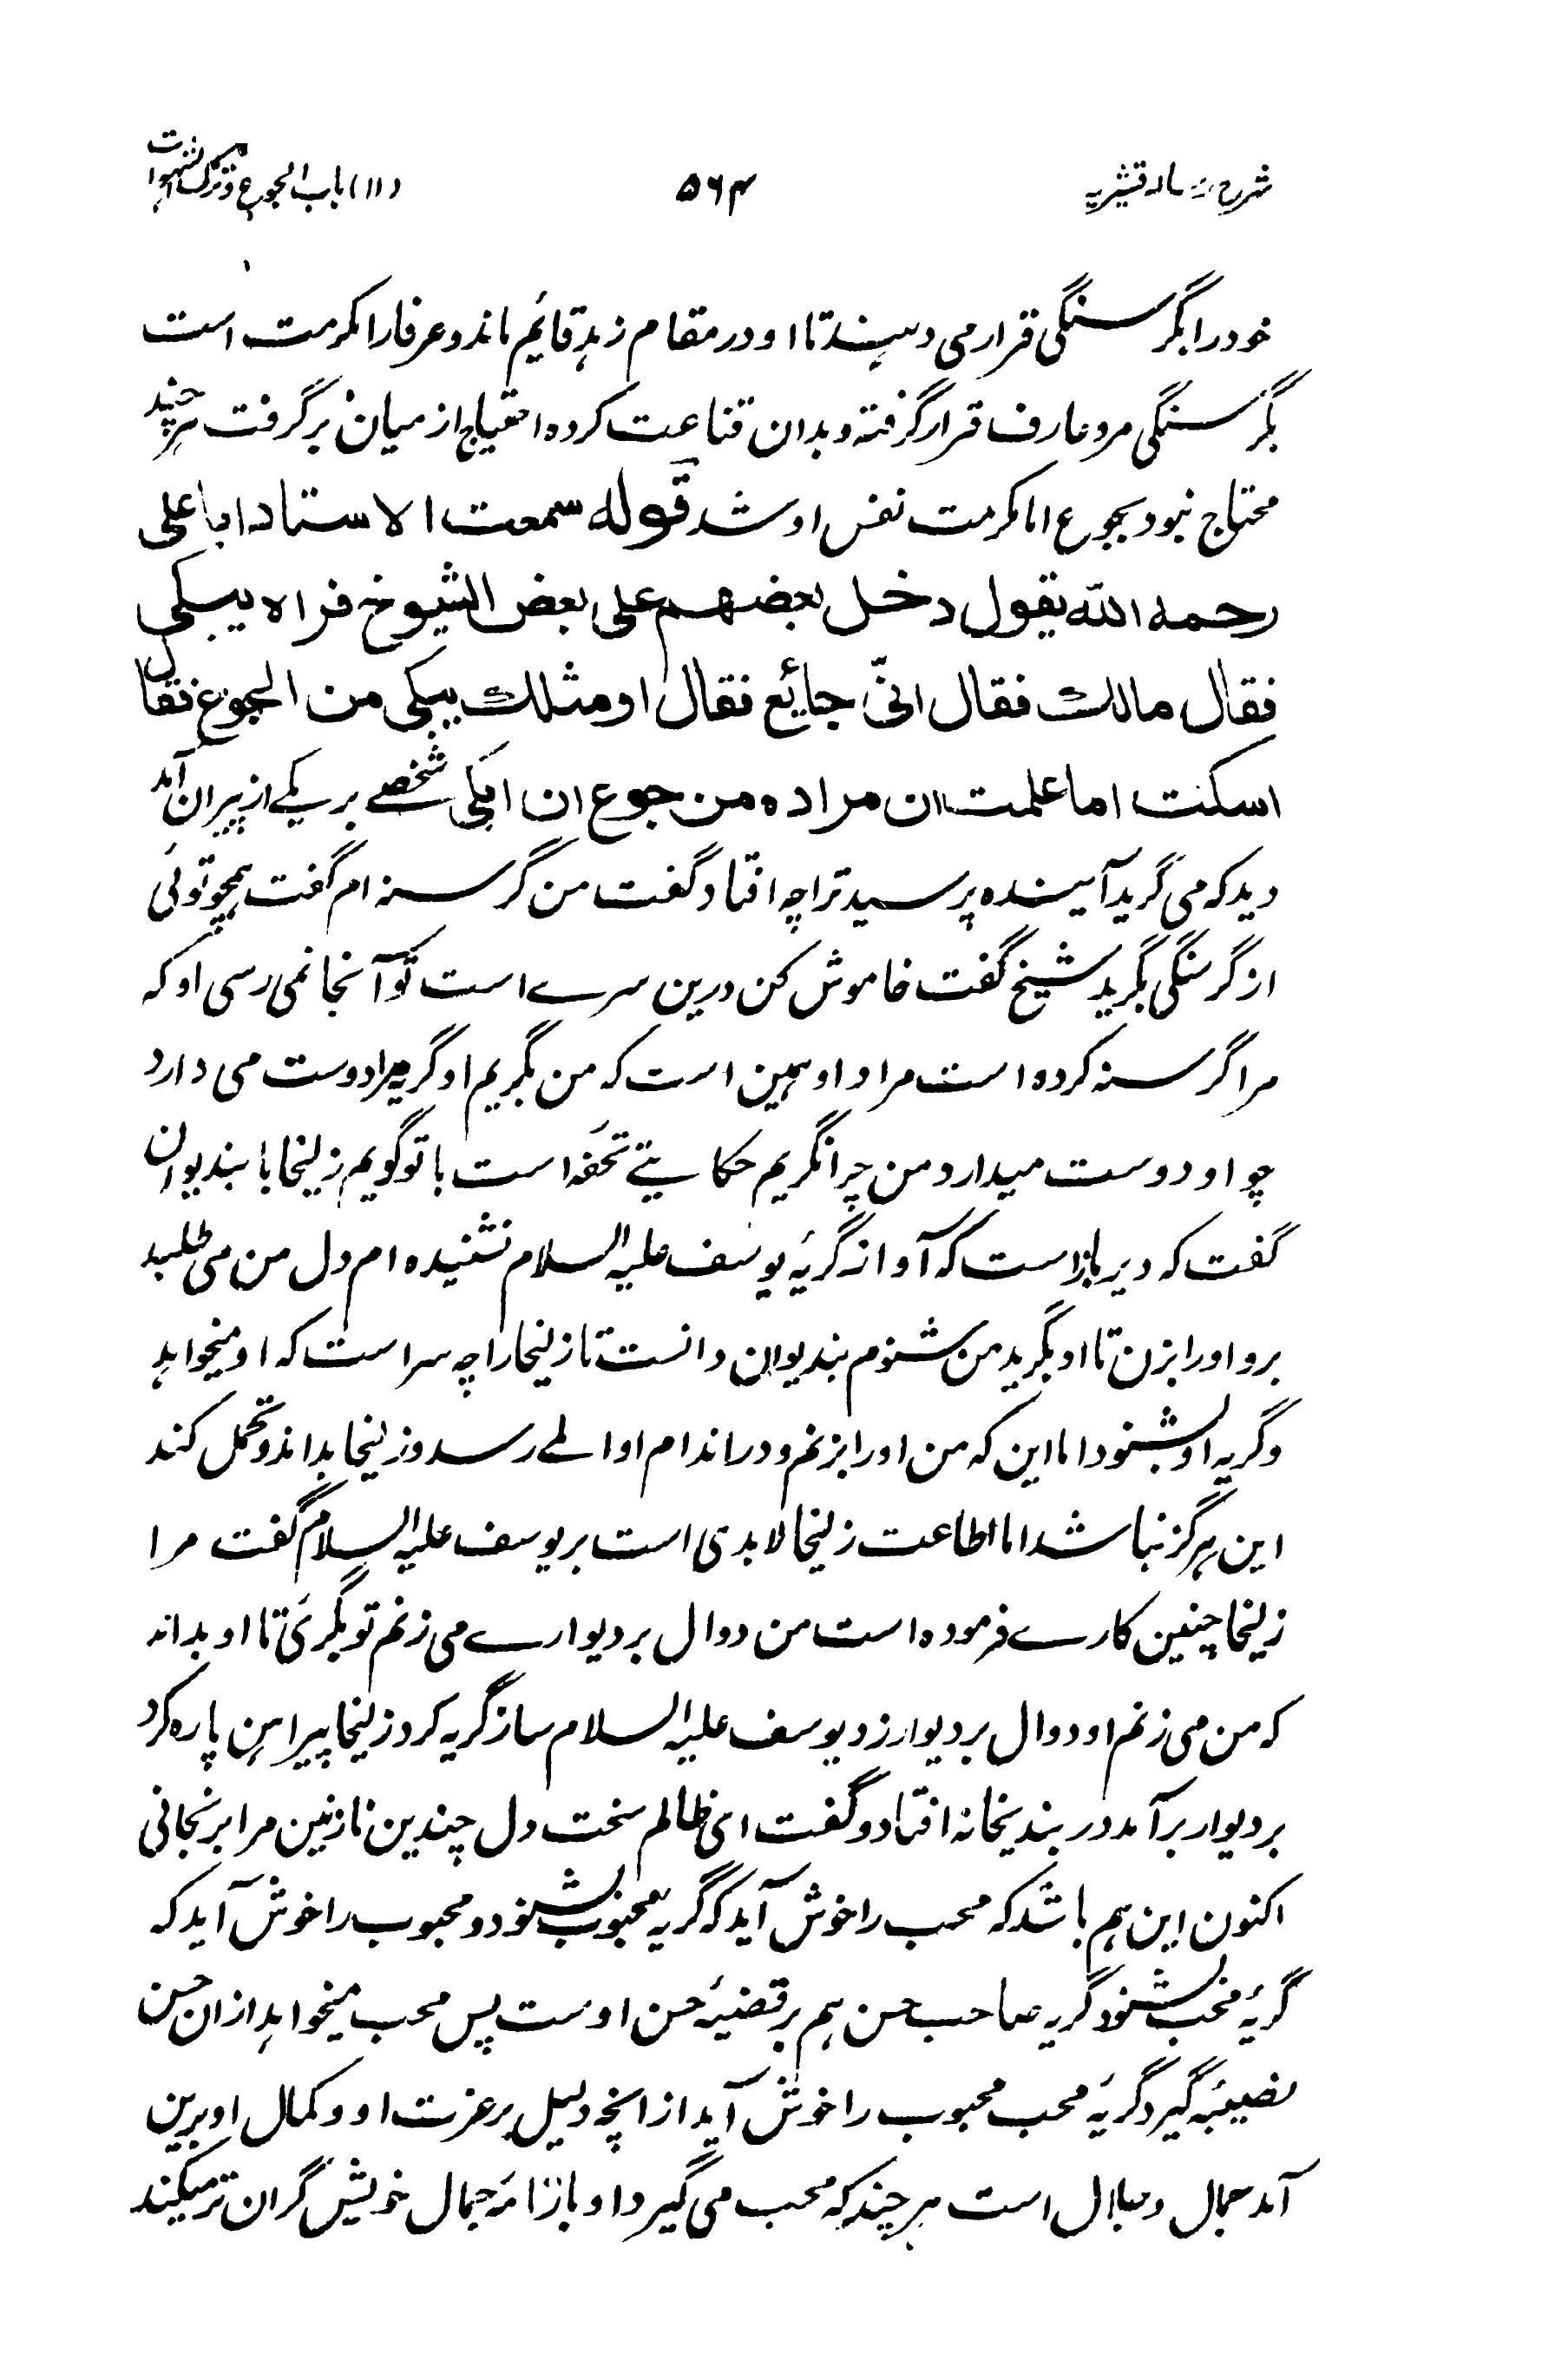 شرح رسالہ قشیریہ ۵۶۴ (۱۱) باب الجوع وترک الشہوات
خود را بگرسنگی قرار می دہند تا او در مقام زہد قایٔم ماند و عرفا را مکرمت است
بگرسنگی مرد عارف قرار گرفتہ و بدان قناعت کردہ احتیاج از میان برگرفت ہرچند
محتاج نبود بجوع اما مکرمت نفس او شد قولہ سمعت الاستاد ابا علی
رحمہ اللہ یقول دخل بعضہم علی بعض الشیوخ فراہ یبکی
فقال مالک فقال انیّ جایٔع فقال او مثلک یبکی من الجوع فقال
اسکت اما علمت ان مرادہ من جوع ان ابکی شخصے بر یکے از پیران آمد
دید کہ می گرید آیندہ پرسید ترا چہ افتاد گفت من گرسنہ ام گفت ہمچو توئی
از گرسنگی بگرید شیخ گفت خاموش کن درین سرے است تو آنجا نمی رسی او کہ
مرا گرسنہ کردہ است مراد او ہمین است کہ من بگریم او گریہ مرا دوست می دارد
چو او دوست میدارد من چرا نگریم حکایتے تحفہ است با تو گویم زلیخا با بندیوان
گفت کہ دیر باز است کہ آواز گریۂ یوسف علیہ السلام نشنیدہ ام دل من می طلبد
برو او را بزن تا او بگرید من شنوم بندیوان دانست تا زلیخا را چہ سر است کہ او میخواہد
و گریہ او بشنود اما این کہ من او را بزنم و در اندام او المے رسد و زلیخا بداند و تحمل کند
این ہرگز نباشد اما اطاعت زلیخا لابدی است بر یوسف علیہ السلام گفت مرا
زلیخا چنین کارے فرمودہ است من دوال بر دیوارے می زنم تو بگری تا او بداند
کہ من می زنم او دوال بر دیوار زد یوسف علیہ السلام ساز گریہ کرد زلیخا پیراہن پارہ کرد
بر دیوار برآمد در بندیخانہ افتاد و گفت ای ظالم سخت دل چندین نازنین مرا برنجانی
اکنون این ہم باشد کہ محب را خوش آید کہ گریہ محبوب شنود و محبوب را خوش آید کہ
گریۂ محب شنود گریہ صاحب حسن ہم بر قضیۂ حسن اوست پس محب میخواہد از ان حسن
نصیبۂ گیرد گریۂ محب محبوب را خوش آید از انچہ دلیل بر عزت او و کمال او برین
آمد جمال و جلال است ہر چند کہ محب می گیرد او باز نامۂ جمال خویش گران تر میکند